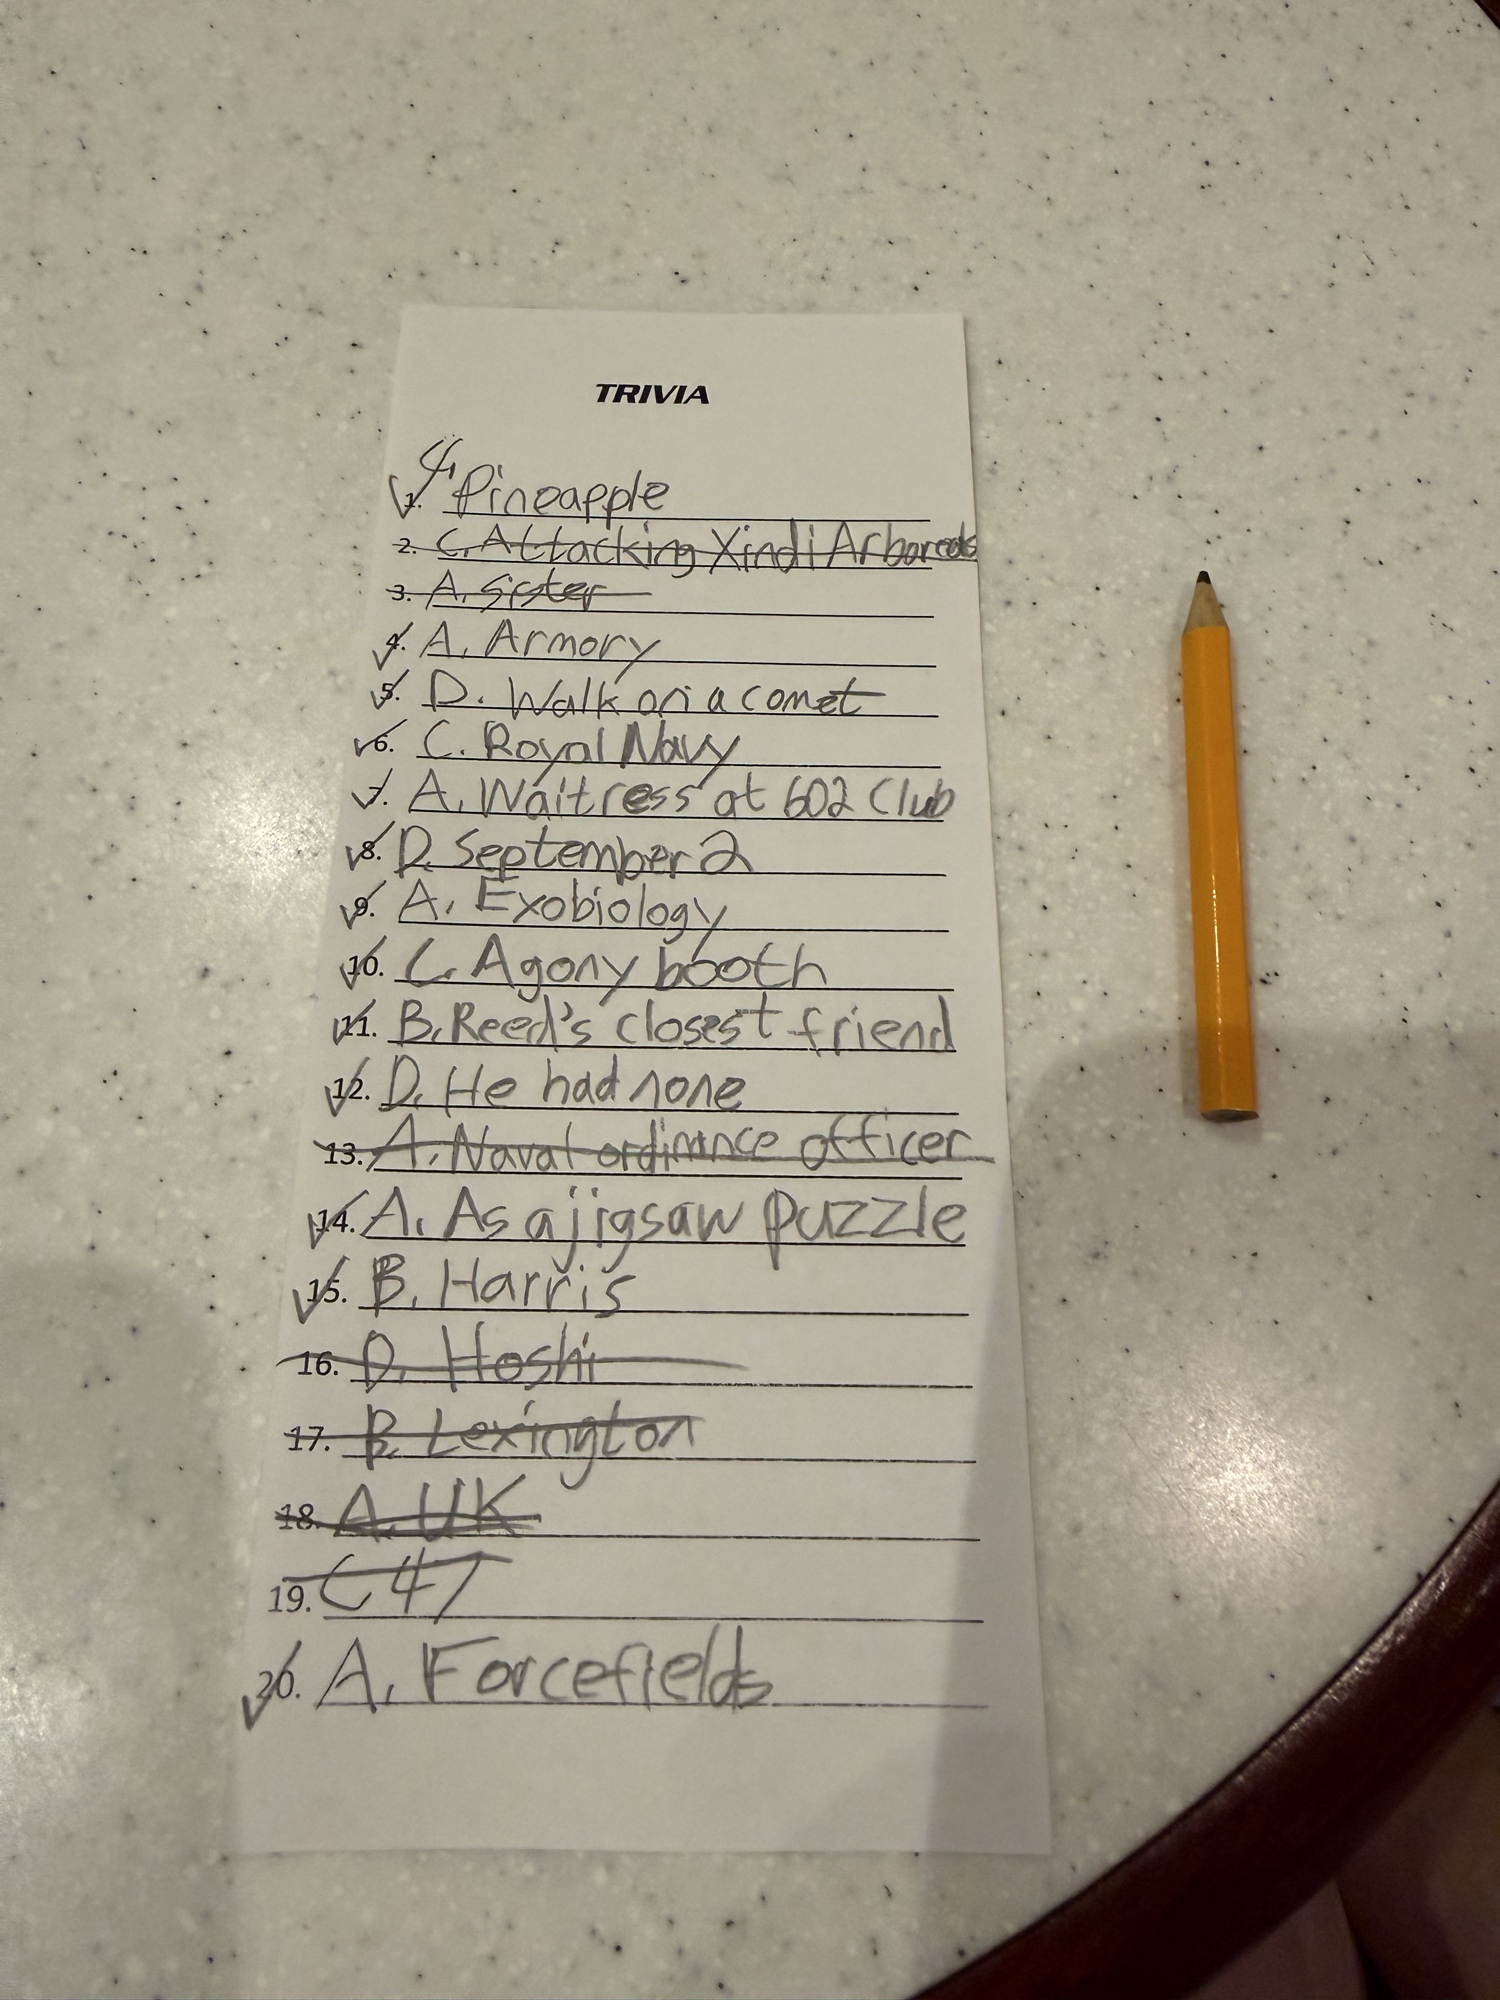 TRIVIA
1. 4. Pineapple
2. C. Attacking Xindi Arboreals
3. A. Sister
4. A. Armory
5. D. Walk on a comet
6. C. Royal Navy
7. A. Waitress at 602 Club
8. D. September 2
9. A. Exobiology
10. C. Agony booth
11. B. Reed's closest friend
12. D. He had none
13. A. Naval ordinance officer
14. A. As a jigsaw puzzle
15. B. Harris
16. D. Hoshi
17. B. Lexington
18. A. UK
19. C 47
20. A. Forcefields